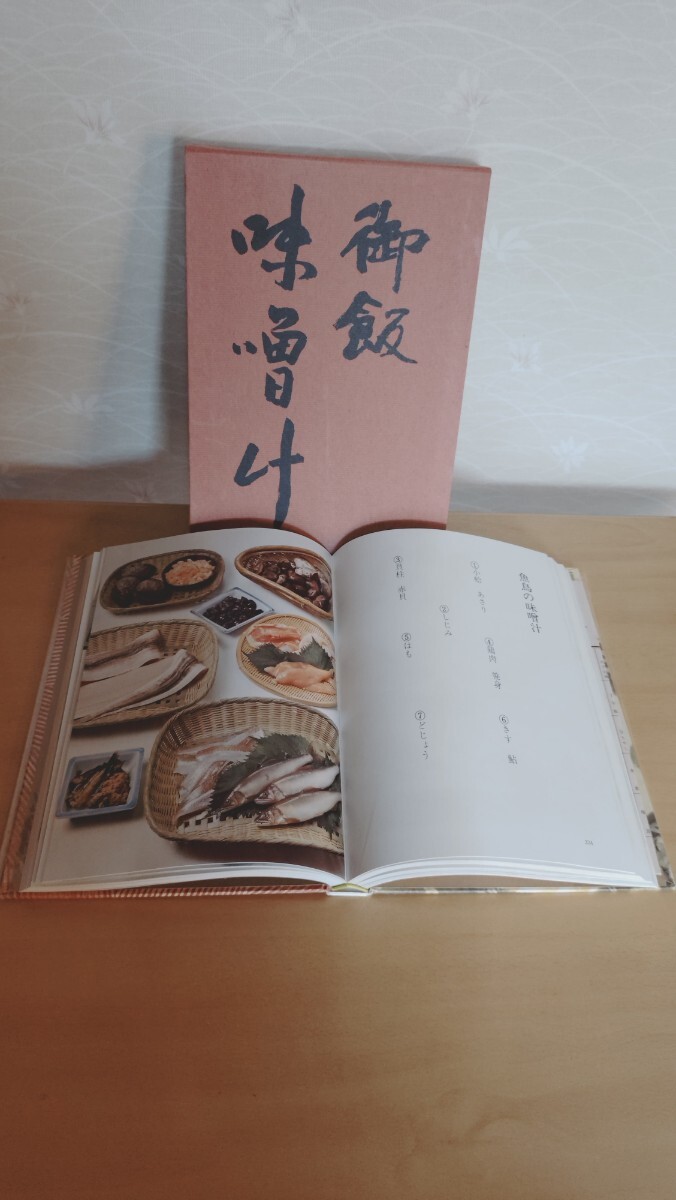 御飯
味噌汁
魚鳥の味噌汁
①小蛤 あさり
②しじみ
③貝柱 赤貝
④鶏肉 笹身
⑤はも
⑥きす 鮎
⑦どじょう